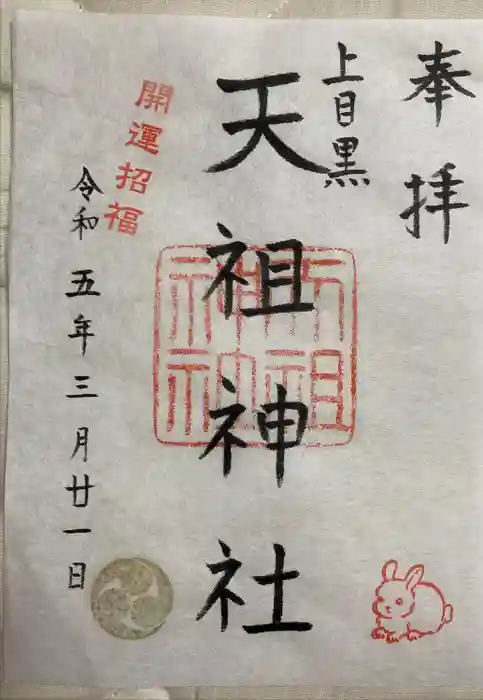 奉拝
上目黒
天祖神社
天祖神社
開運招福
令和五年三月廿一日